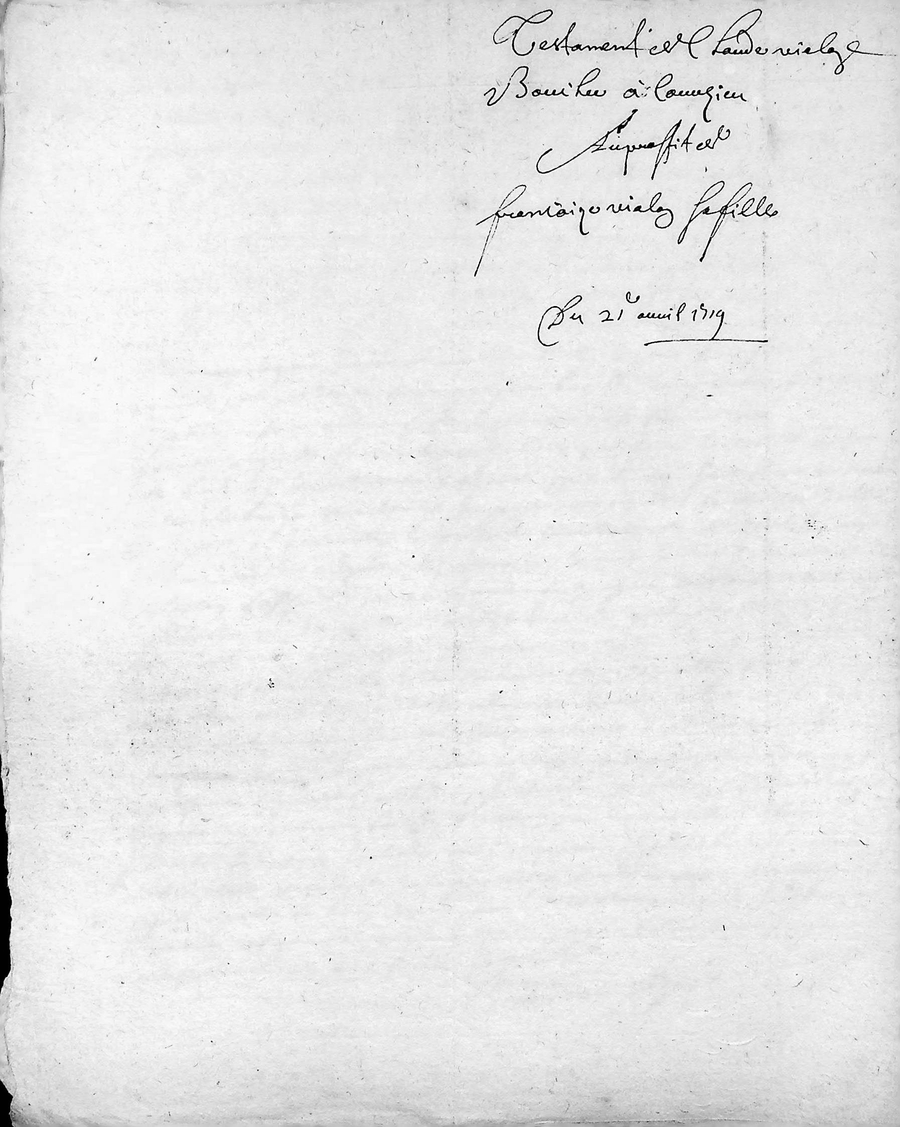 Testament de Claude vialey
Boucher à Courzieu
Au proffit de
francoise vialey sa fille
Du 21e auril 1719